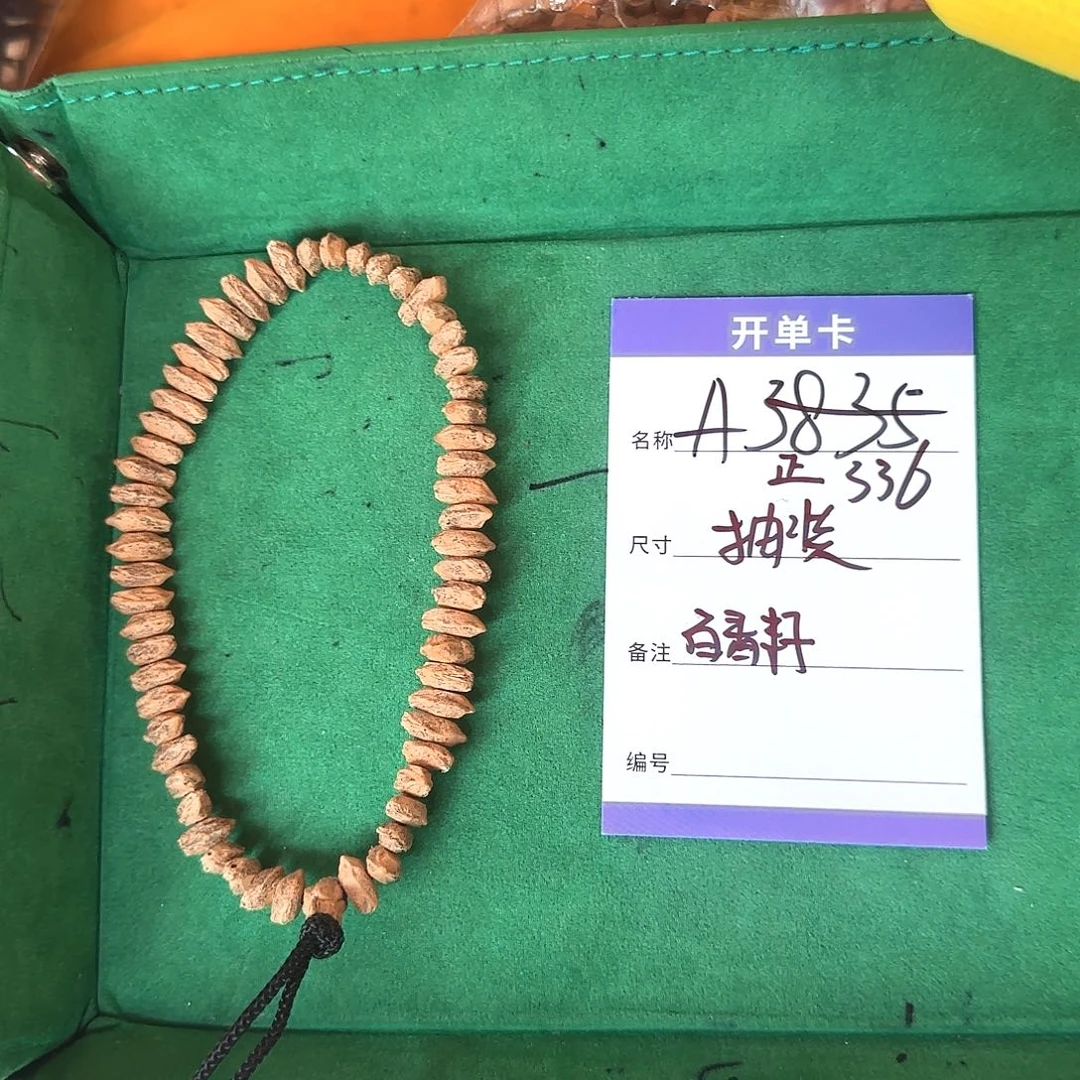 开单卡
名称 A 3835
正 336
尺寸 抽奖
备注 百香籽
编号